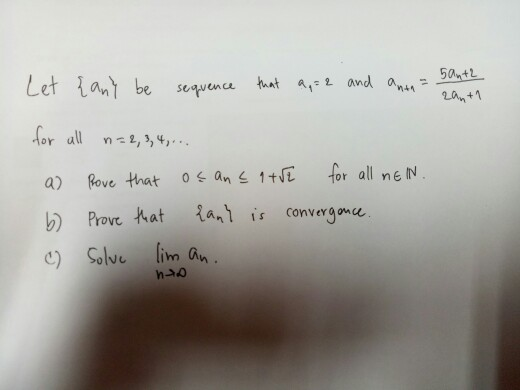 Let {aₙ} be sequence that a₁ = 2 and aₙ₊₁ = (5aₙ+2)/(2aₙ+1)
for all n = 2, 3, 4, ...
a) Prove that 0 ≤ aₙ ≤ 1+√2 for all n ∈ ℕ.
b) Prove that {aₙ} is convergance.
c) Solve lim aₙ.
n→∞